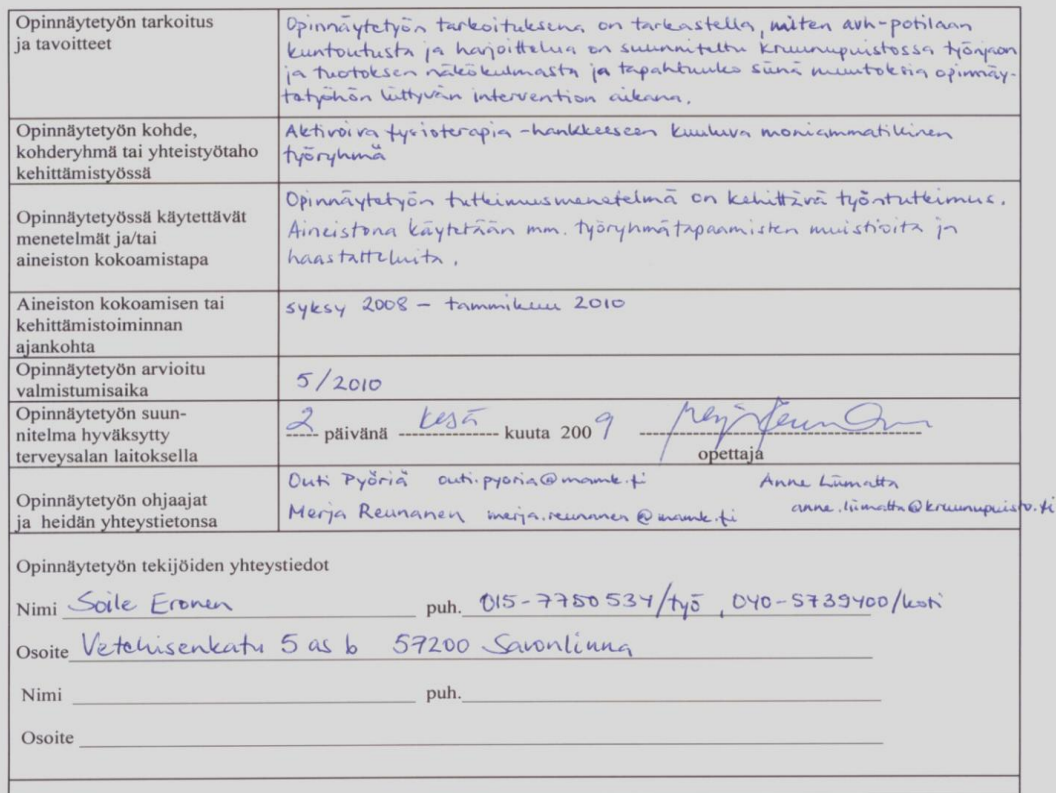 Opinnäytetyön tarkoitus
ja tavoitteet
Opinnäytetyön tarkoituksena on tarkastella, miten avh-potilaan
kuntoutusta ja harjoittelua on suunniteltu Kruunupuistossa työnjaon
ja tuotoksen näkökulmasta ja tapahtuuko siinä muutoksia opinnäy-
tetyöhön liittyvän intervention aikana.
Opinnäytetyön kohde,
kohderyhmä tai yhteistyötaho
kehittämistyössä
Aktivoiva fysioterapia -hankkeeseen kuuluva moniammatillinen
työryhmä
Opinnäytetyössä käytettävät
menetelmät ja/tai
aineiston kokoamistapa
Opinnäytetyön tutkimusmenetelmä on kehittävä työntutkimus.
Aineistona käytetään mm. työryhmätapaamisten muistioita ja
haastatteluita.
Aineiston kokoamisen tai
kehittämistoiminnan
ajankohta
syksy 2008 – tammikuu 2010
Opinnäytetyön arvioitu
valmistumisaika
5/2010
Opinnäytetyön suun-
nitelma hyväksytty
terveysalan laitoksella
2 päivänä kesä kuuta 2009
opettaja
Opinnäytetyön ohjaajat
ja heidän yhteystietonsa
Outi Pyöriä outi.pyoria@mamk.fi Anne Liimatta
Merja Reunanen merja.reunanen@mamk.fi anne.liimatta@kruunupuisto.fi
Opinnäytetyön tekijöiden yhteystiedot
Nimi Soile Eronen puh. 015-7750534/työ, 040-5739400/koti
Osoite Vetehisenkatu 5 as b 57200 Savonlinna
Nimi puh.
Osoite